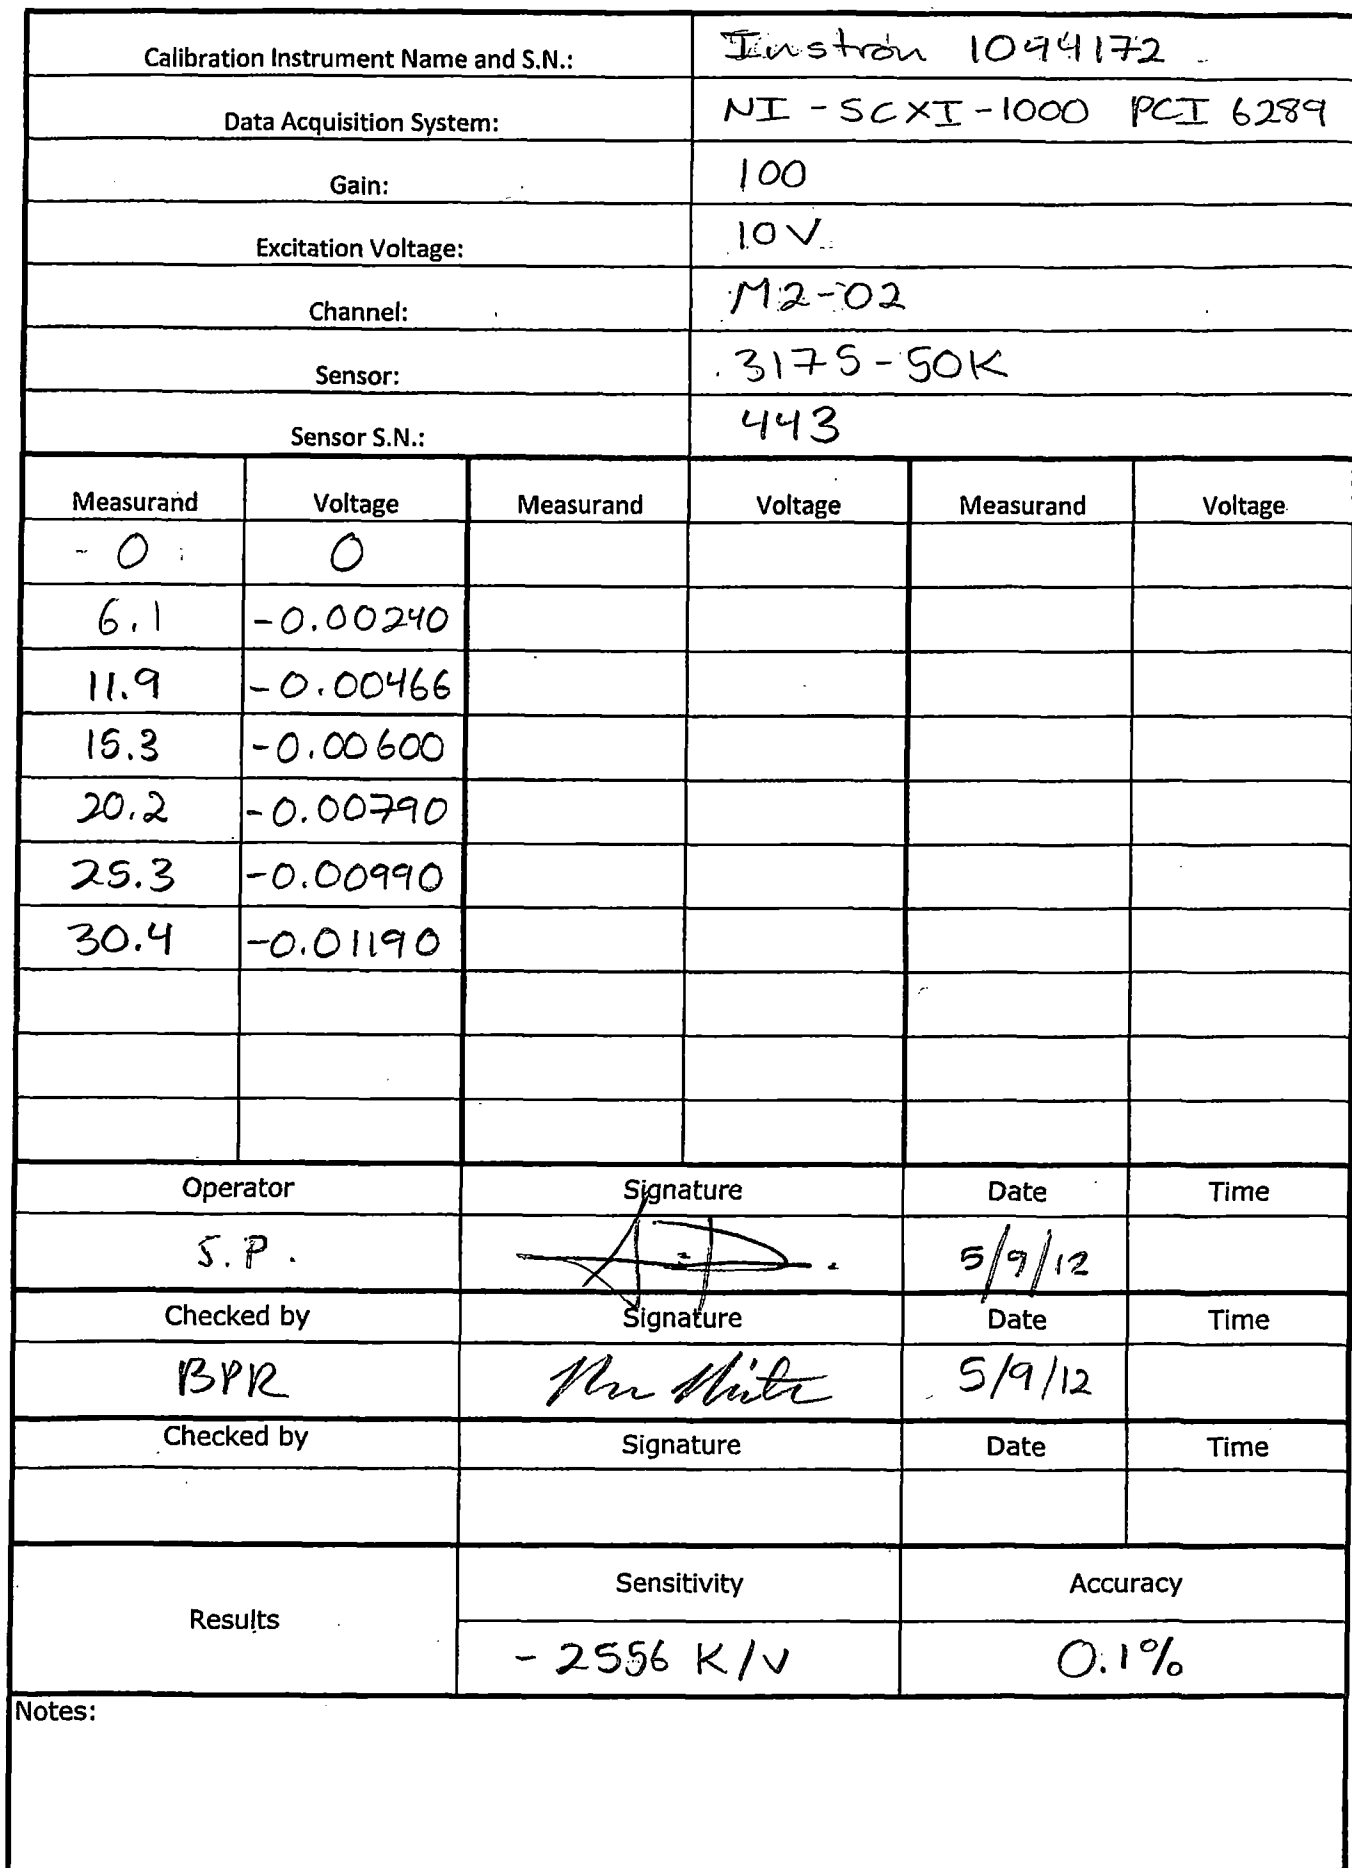 Calibration Instrument Name and S.N.: Instron 1094172
Data Acquisition System: NI-SCXI-1000 PCI 6289
Gain: 100
Excitation Voltage: 10V
Channel: M2-02
Sensor: 3175-50K
Sensor S.N.: 443
Measurand Voltage Measurand Voltage Measurand Voltage
0 0
6.1 -0.00240
11.9 -0.00466
15.3 -0.00600
20.2 -0.00790
25.3 -0.00990
30.4 -0.01190
Operator Signature Date Time
S.P. 5/9/12
Checked by Signature Date Time
BPR 5/9/12
Checked by Signature Date Time
Results Sensitivity Accuracy
-2556 K/V 0.1%
Notes: